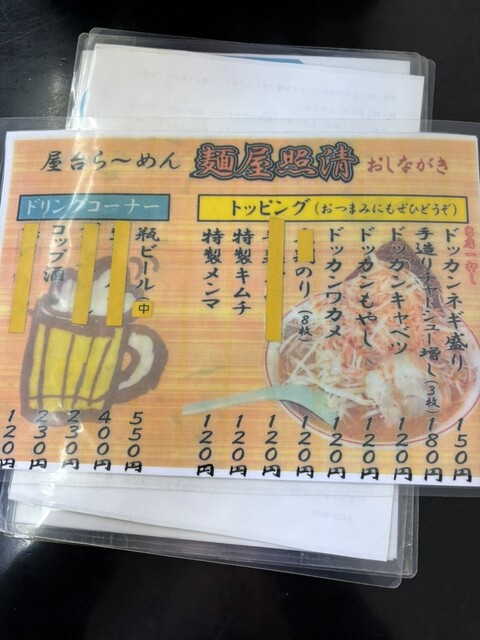 屋台ら〜めん 麺屋照清 おしながき
トッピング(おつまみにもぜひどうぞ)
ドッカンネギ盛り 150円
手造りチャーシュー増し(3枚) 180円
ドッカンキャベツ 120円
ドッカンもやし 120円
ドッカンワカメ 120円
のり(8枚) 120円
特製キムチ 120円
特製メンマ 120円
ドリンクコーナー
瓶ビール(中) 550円
400円
230円
コップ酒 230円
120円